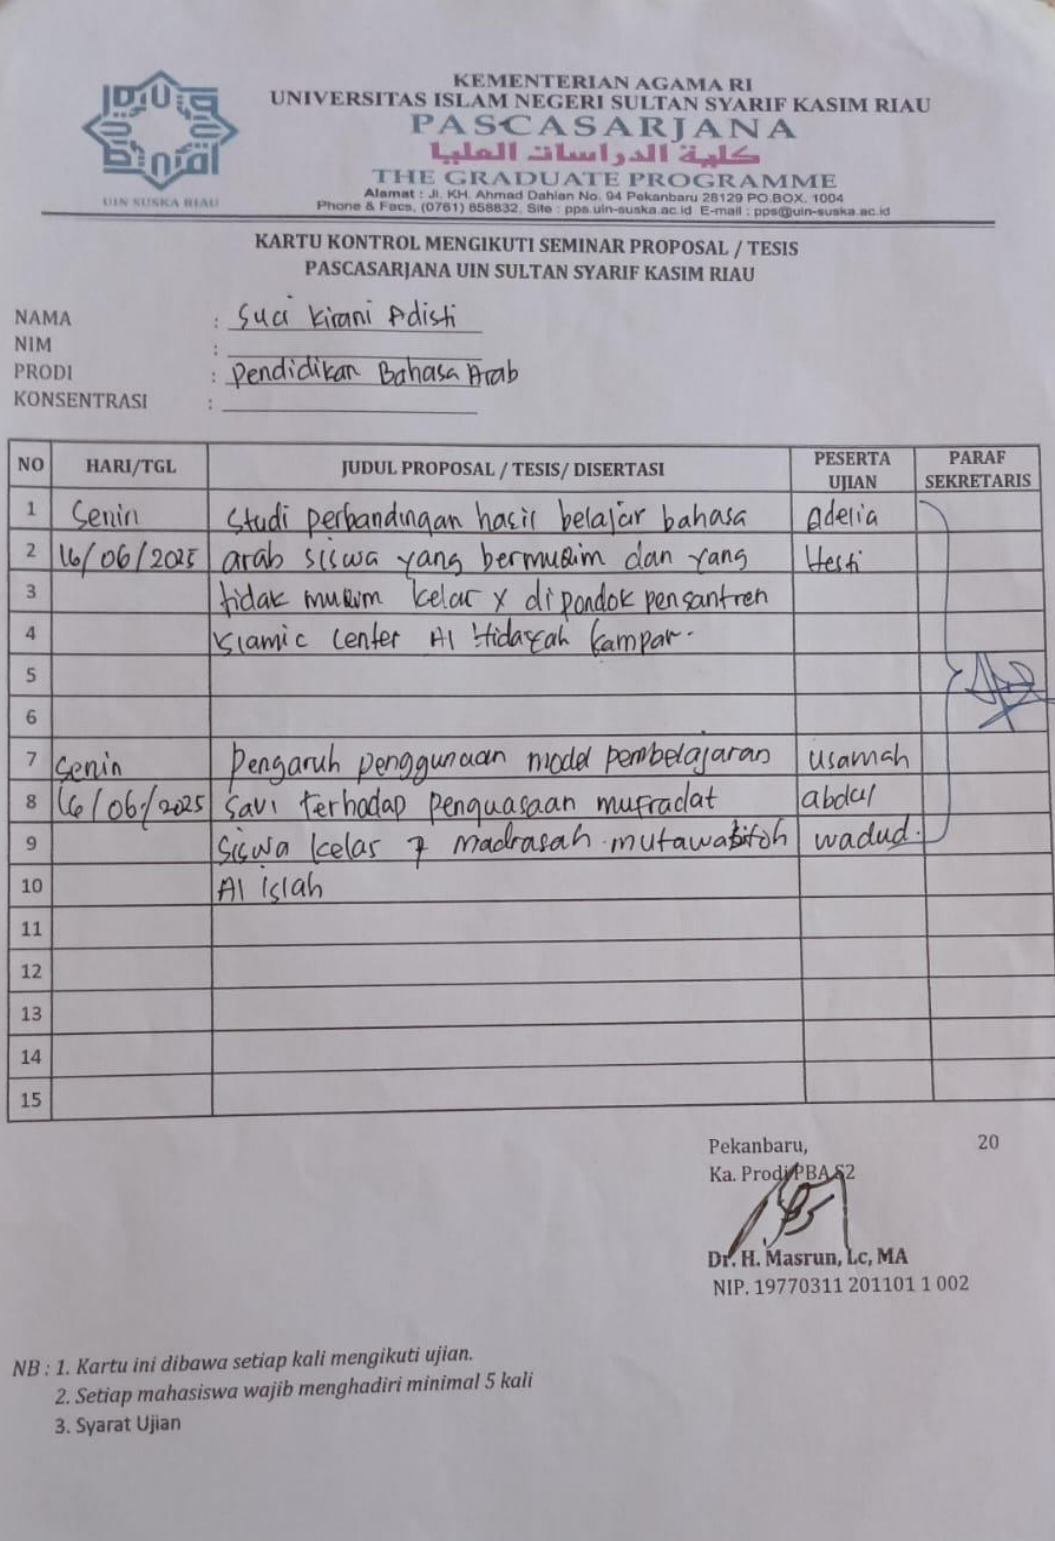 KEMENTERIAN AGAMA RI
UNIVERSITAS ISLAM NEGERI SULTAN SYARIF KASIM RIAU
PASCASARJANA
كلية الدراسات العليا
THE GRADUATE PROGRAMME
Alamat : Jl. KH. Ahmad Dahlan No. 94 Pekanbaru 28129 PO.BOX. 1004
Phone & Facs, (0761) 858832, Site : pps.uin-suska.ac.id E-mail : pps@uin-suska.ac.id
UIN SUSKA RIAU
KARTU KONTROL MENGIKUTI SEMINAR PROPOSAL / TESIS
PASCASARJANA UIN SULTAN SYARIF KASIM RIAU
NAMA : Suci Kirani Adisti
NIM :
PRODI : Pendidikan Bahasa Arab
KONSENTRASI :
NO HARI/TGL JUDUL PROPOSAL / TESIS/ DISERTASI PESERTA UJIAN PARAF SEKRETARIS
1 Senin Studi perbandingan hasil belajar bahasa Adelia
2 16/06/2025 arab siswa yang bermukim dan yang Hesti
3 tidak mukim kelas X di pondok pensantren
4 Islamic Center Al Hidayah Kampar.
5
6
7 Senin Pengaruh penggunaan model pembelajaran Usamah
8 16/06/2025 Savi terhadap penguasaan mufradat abdul
9 Siswa kelas 7 madrasah mutawasitoh wadud.
10 Al islah
11
12
13
14
15
Pekanbaru, 20
Ka. Prodi PBA S2
Dr. H. Masrun, Lc, MA
NIP. 19770311 201101 1 002
NB : 1. Kartu ini dibawa setiap kali mengikuti ujian.
2. Setiap mahasiswa wajib menghadiri minimal 5 kali
3. Syarat Ujian